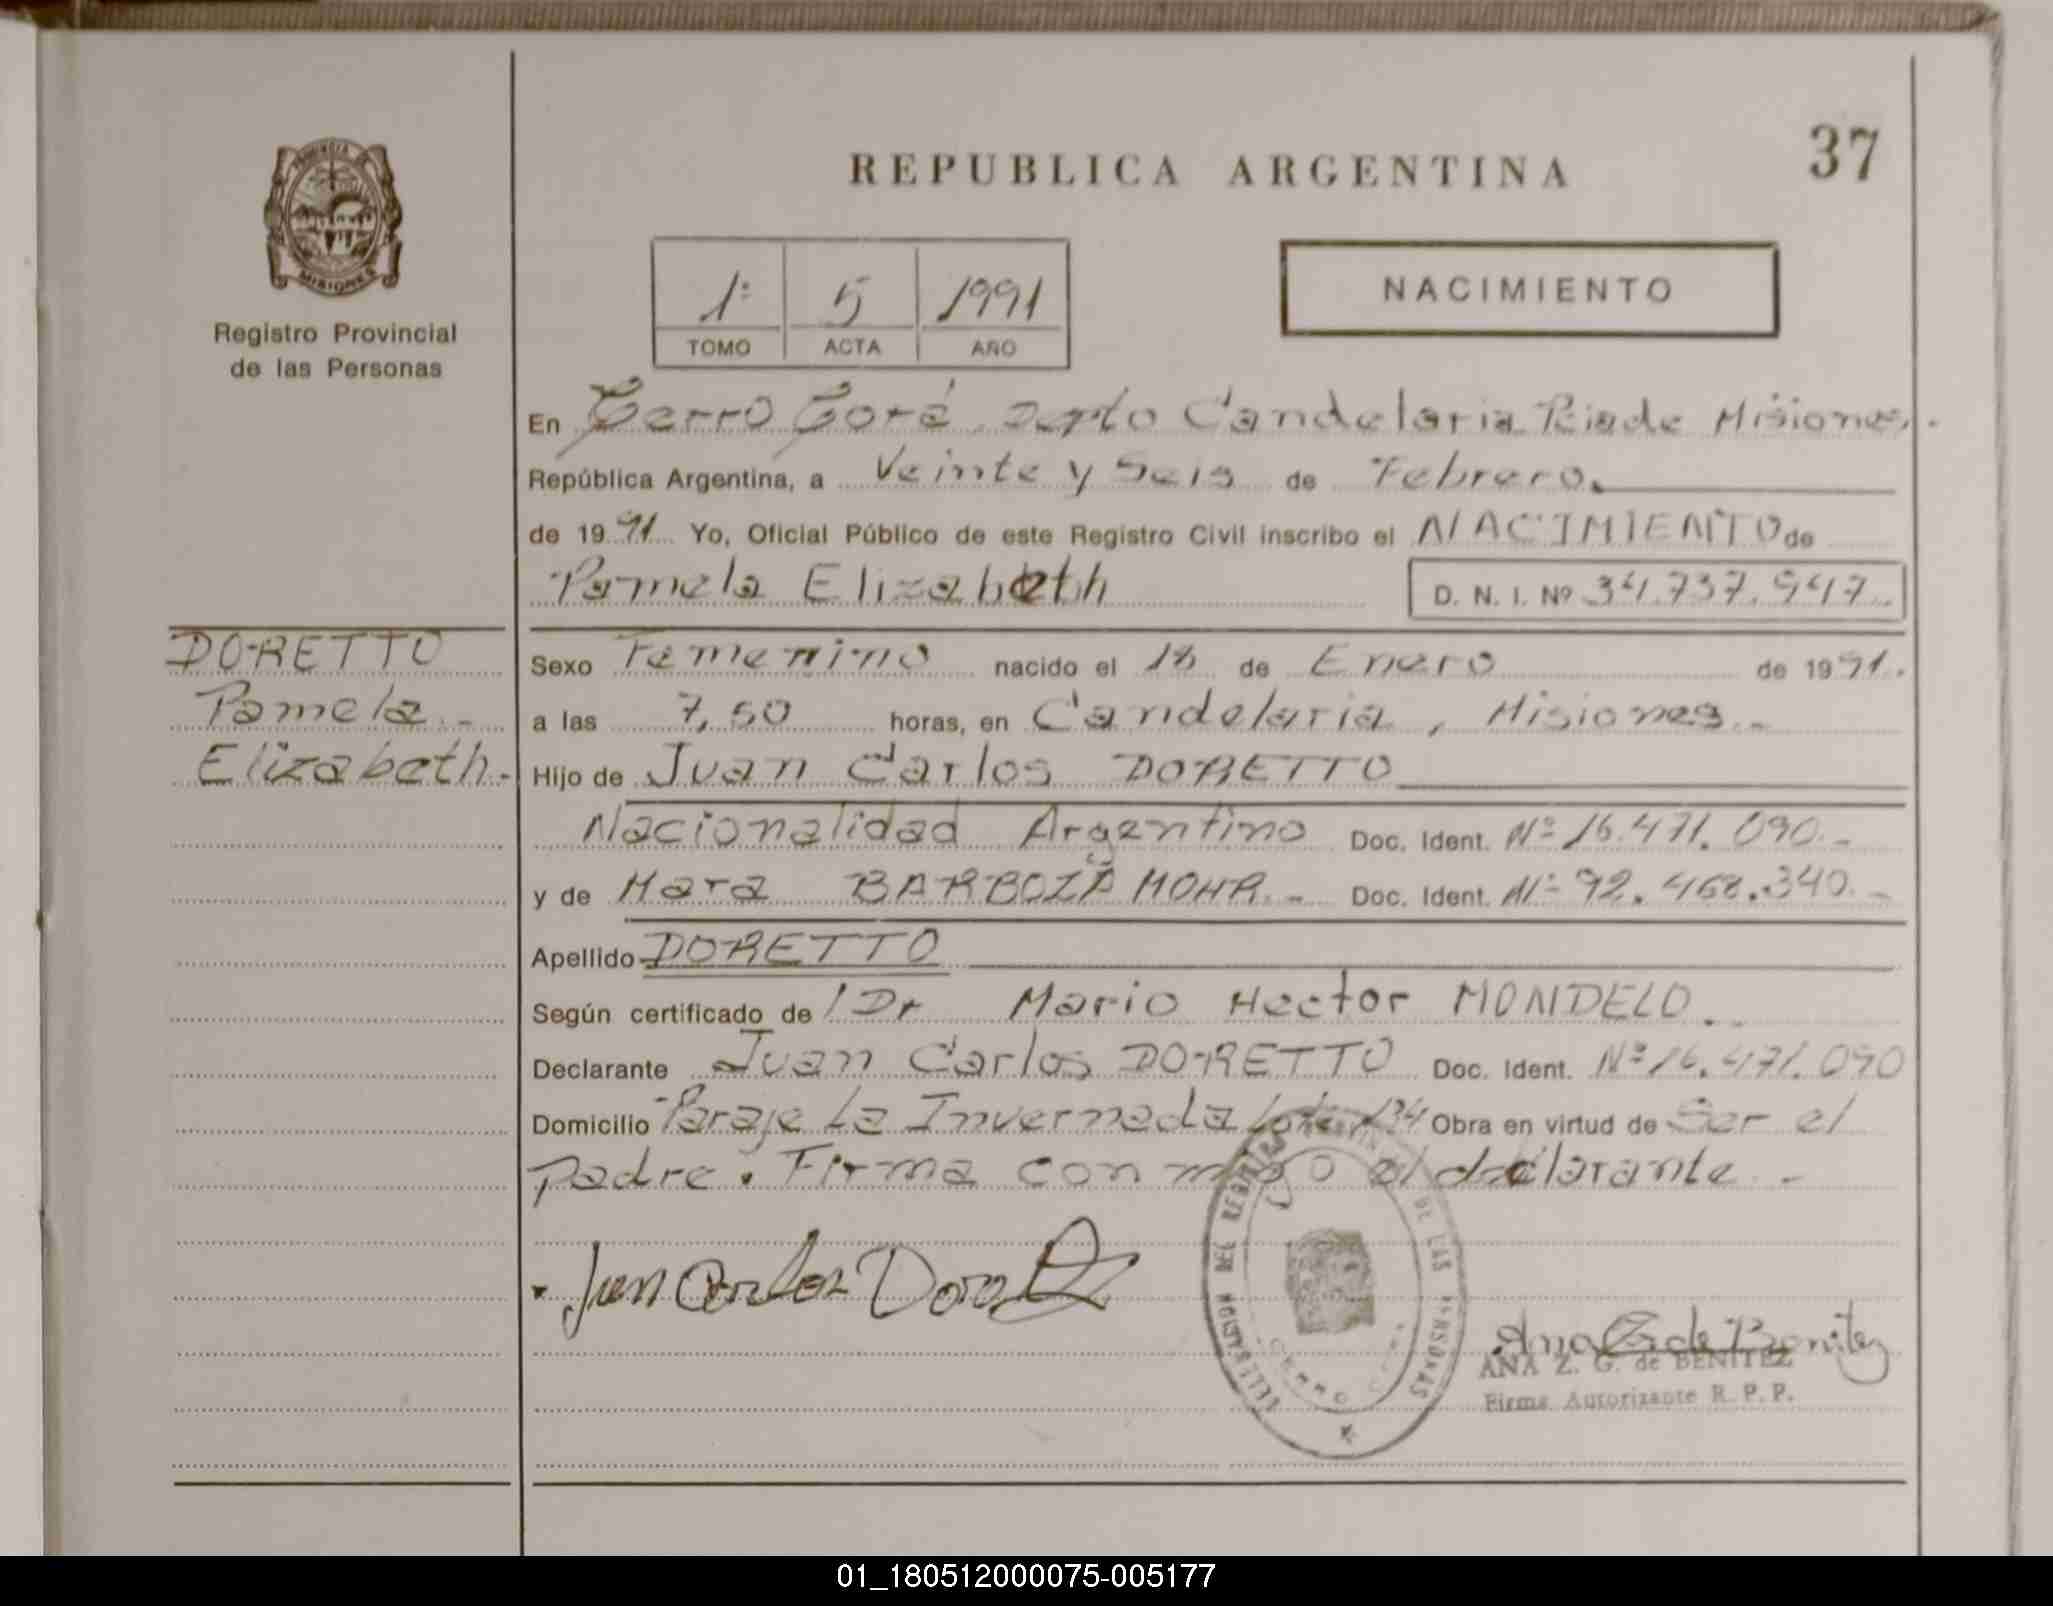 37
REPUBLICA ARGENTINA
PROVINCIA DE
MISIONES
Registro Provincial
de las Personas
1º 5 1991
TOMO ACTA AÑO
NACIMIENTO
En Cerro Corá Depto Candelaria Pcia de Misiones.
República Argentina, a Veinte y Seis de Febrero.
de 1991 Yo, Oficial Público de este Registro Civil inscribo el NACIMIENTO de
Pamela Elizabeth D. N. I. Nº 34.737.947
DORETTO
Pamela.-
Elizabeth.-
Sexo Femenino nacido el 18 de Enero de 1991.
a las 7,50 horas, en Candelaria, Misiones.-
Hijo de Juan Carlos DORETTO
Nacionalidad Argentino Doc. Ident. Nº 16.471.090.-
y de Mara BARBOZA MOHR.- Doc. Ident. Nº 92.468.340.-
Apellido DORETTO
Según certificado de Dr Mario Hector MONDELO.
Declarante Juan Carlos DORETTO Doc. Ident. Nº 16.471.090
Domicilio Paraje La Invernada Lote 134 Obra en virtud de Ser el
padre. Firma con migo el declarante.-
Juan Carlos Doretto
DELEGACION DEL REGISTRO DE LAS PERSONAS
CERRO CORA
Ana Z G de Benitez
ANA Z. G. de BENITEZ
Firma Autorizante R. P. P.
01_180512000075-005177